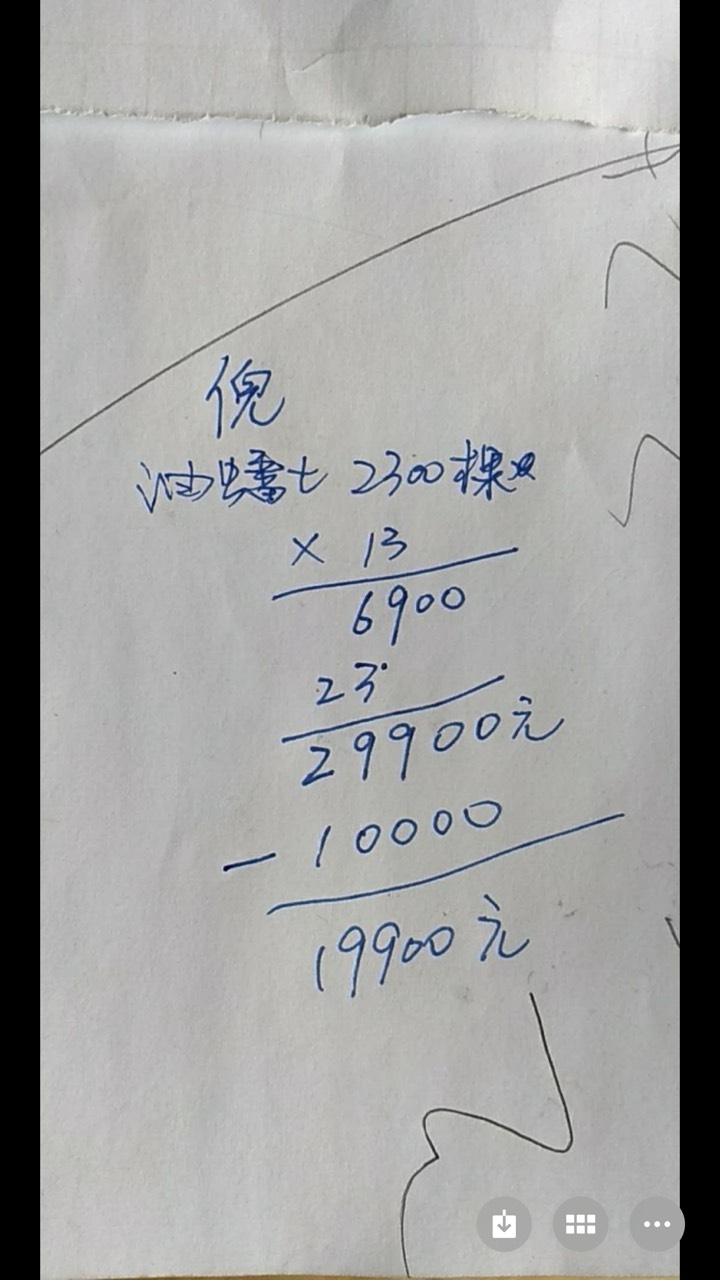 倪
油蟠七 2300棵
× 13
6900
23
29900元
- 10000
19900元